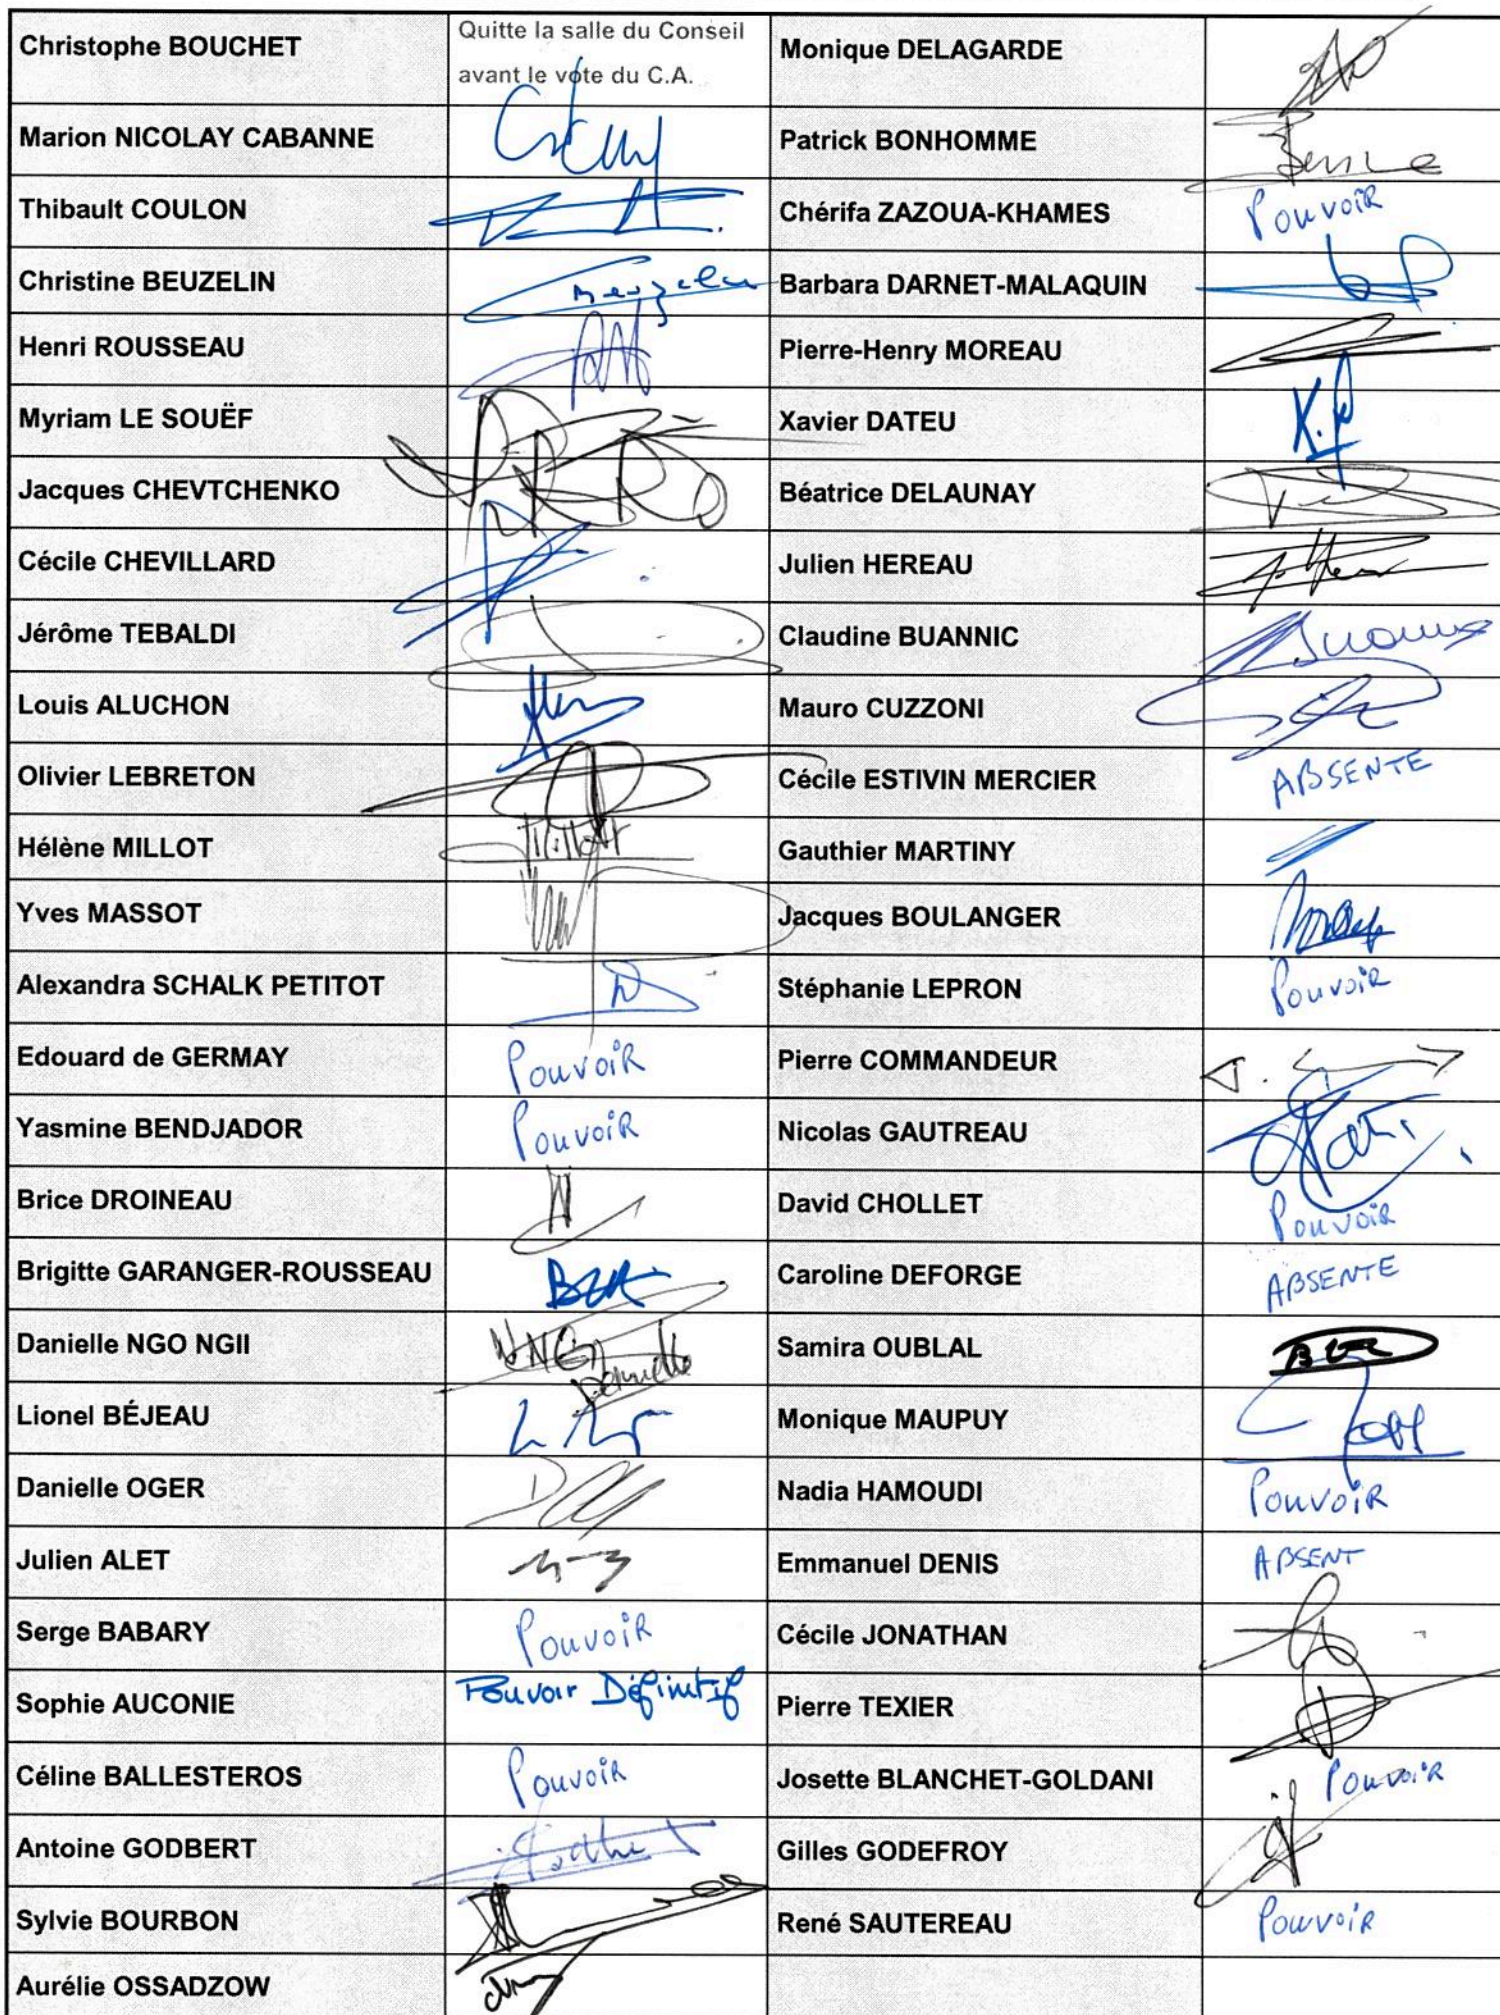 Christophe BOUCHET Quitte la salle du Conseil avant le vote du C.A. Monique DELAGARDE
Marion NICOLAY CABANNE Patrick BONHOMME
Thibault COULON Chérifa ZAZOUA-KHAMES Pouvoir
Christine BEUZELIN Barbara DARNET-MALAQUIN
Henri ROUSSEAU Pierre-Henry MOREAU
Myriam LE SOUËF Xavier DATEU
Jacques CHEVTCHENKO Béatrice DELAUNAY
Cécile CHEVILLARD Julien HEREAU
Jérôme TEBALDI Claudine BUANNIC
Louis ALUCHON Mauro CUZZONI
Olivier LEBRETON Cécile ESTIVIN MERCIER ABSENTE
Hélène MILLOT Gauthier MARTINY
Yves MASSOT Jacques BOULANGER
Alexandra SCHALK PETITOT Stéphanie LEPRON Pouvoir
Edouard de GERMAY Pouvoir Pierre COMMANDEUR
Yasmine BENDJADOR Pouvoir Nicolas GAUTREAU
Brice DROINEAU David CHOLLET Pouvoir
Brigitte GARANGER-ROUSSEAU Caroline DEFORGE ABSENTE
Danielle NGO NGII Samira OUBLAL
Lionel BÉJEAU Monique MAUPUY
Danielle OGER Nadia HAMOUDI Pouvoir
Julien ALET Emmanuel DENIS ABSENT
Serge BABARY Pouvoir Cécile JONATHAN
Sophie AUCONIE Pouvoir Définitif Pierre TEXIER
Céline BALLESTEROS Pouvoir Josette BLANCHET-GOLDANI Pouvoir
Antoine GODBERT Gilles GODEFROY
Sylvie BOURBON René SAUTEREAU Pouvoir
Aurélie OSSADZOW